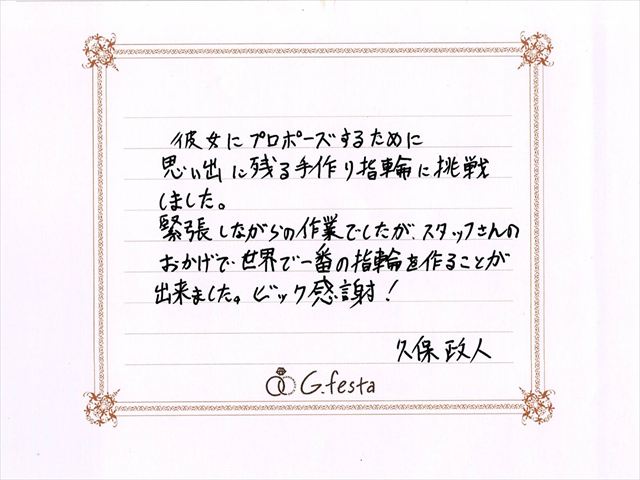 彼女にプロポーズするために
思い出に残る手作り指輪に挑戦
しました。
緊張しながらの作業でしたが、スタッフさんの
おかげで世界で一番の指輪を作ることが
出来ました。ビック感謝!
久保政人
G.festa